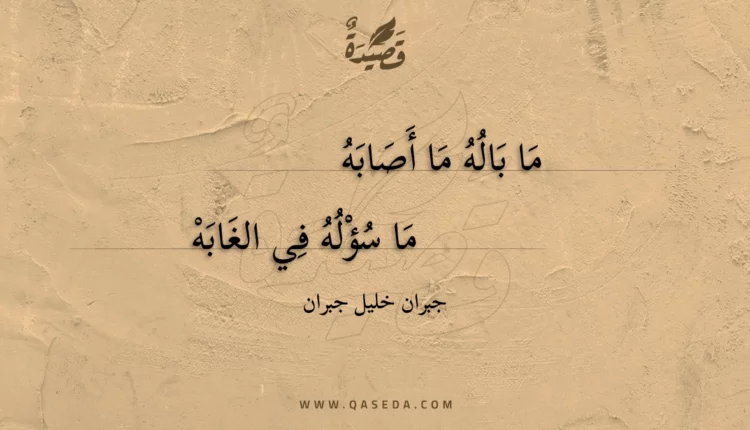 قَصِيْدَةٌ
مَا بَالُهُ مَا أَصَابَهُ
مَا سُؤْلُهُ فِي الغَابَهْ
جبران خليل جبران
WWW.QASEDA.COM